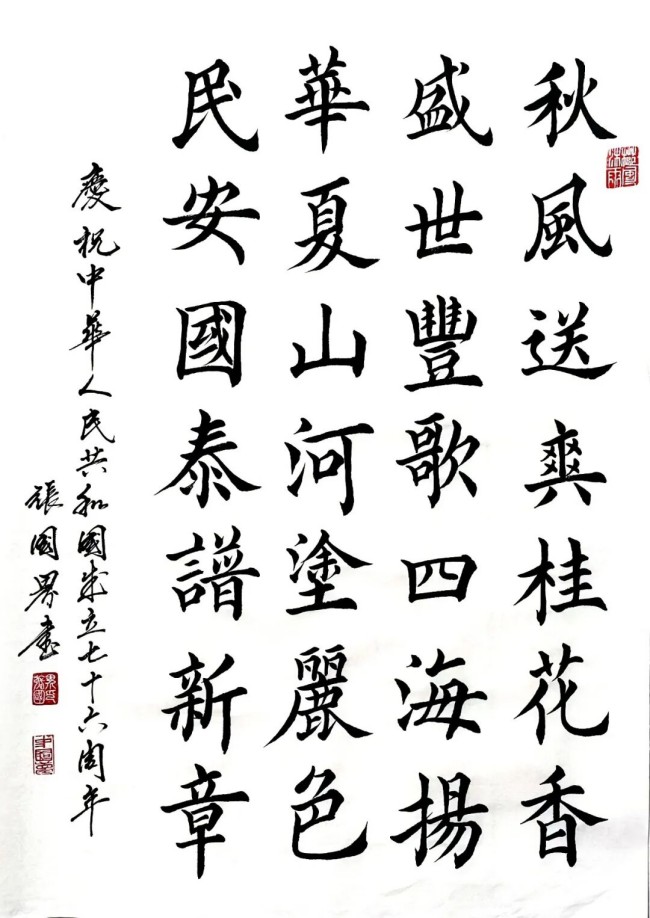 秋風送爽桂花香
盛世豐歌四海揚
華夏山河塗麗色
民安國泰譜新章
慶祝中華人民共和國成立七十六周年
張國界書